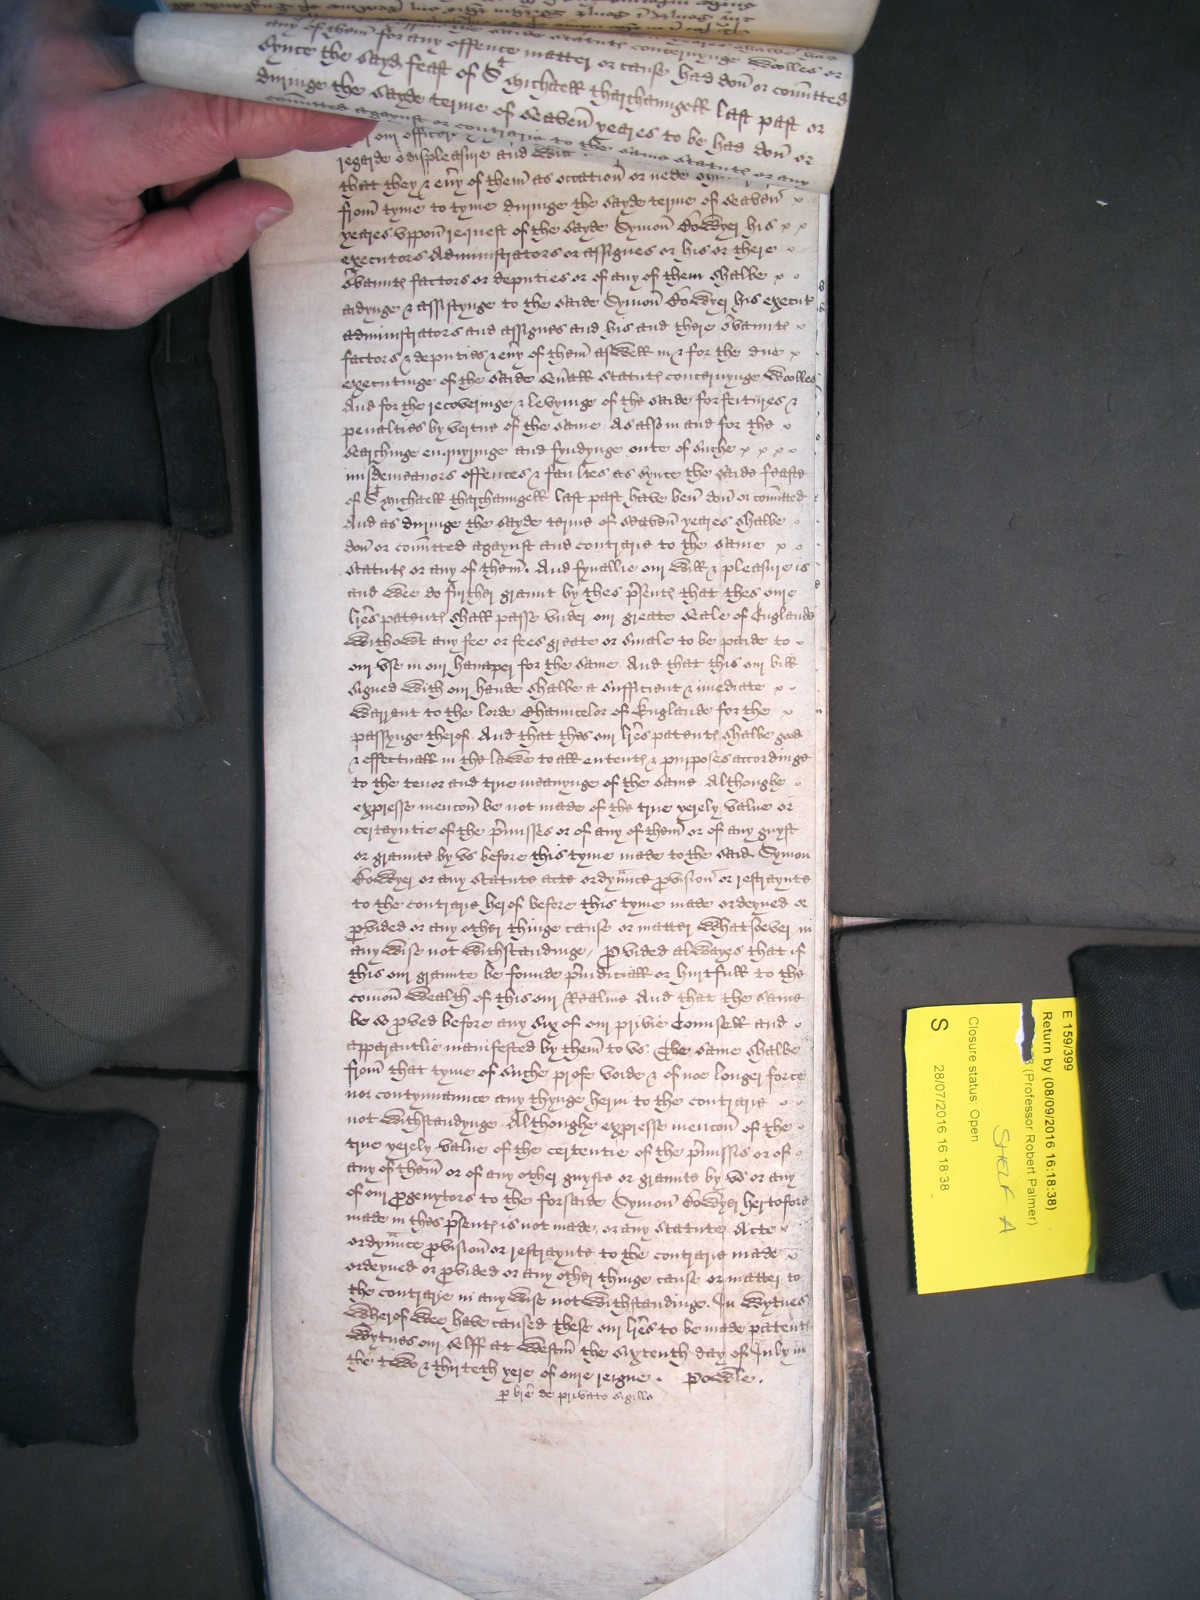 any of them for any offence matter or cause had don or comitted
Synce the sayd feast of St Michaell tharchaungell last past or
duringe the sayde terme of Seaven yeares to be had don or
comitted agaynst or contrarie to the same statut or any
regarde o displeasure and
that they & eny of them as occation or nede
from tyme to tyme duringe the sayde terme of Seaven
yeares uppon request of the sayde Symon Bowyer his
executors Administrators or assignes or his or there
Svaunts factors or deputies or of any of them shalbe
aidynge & assistynge to the saide Symon Bowyer his execut
administrators and assignes and his and there Svaunts
factors & deputies & eny of them aswell in & for the due
executinge of the saide Sevall statuts concernynge Woolles
And for the recoveringe & levyinge of the saide forfeitures &
penalties by vertue of the same As also in and for the
Searchinge enquyringe and fyndynge oute of suche
misdemeanors offences & faultes as synce the saide feaste
of St Michaell tharchaungell last past have ben don or comitted
And as duringe the sayde terme of Seaven yeares shalbe
don or comitted agaynst and contrarie to the same
statuts or any of them. And fynallie our will & pleasure is
and wee do further graunt by thes psents that thes oure
lres patents shall passe under our greate Seale of Englande
withowt any fee or fees greate or smale to be paide to
our use in our hanaper for the same And that this our bill
signed with our hande shalbe a sufficient & imediate
warrant to the lorde Chauncelor of Englande for the
passynge therof. And that thes our lres patents shalbe good
& effectuall in the lawe to all entents & purposes accordinge
to the tenor and true meanynge of the same Althoughe
expresse mencon be not made of the true yerely value or
certayntie of the pmisses or of any of them or of any guyft
or graunte by us before this tyme made to the said Symon
Bowyer or any statute acte ordynnce pvision or restraynte
to the contrarie herof before this tyme made ordeyned or
pvided or any other thinge cause or matter whatsoever in
any wise not withstandinge. Pvided alwayes that if
this our graunte be founde piudiciall or hurtfull to the
comon wealth of this our Realme And that the same
be so pved before any six of our privie Counsell and
apparantlie manifested by them to us The same shalbe
from that tyme of suche profe voide & of noe longer force
nor contynuaunce any thynge herin to the contrarie
not withstandynge Althoughe expresse mencon of the
true yerely value of the certentie of the pmisses or of
any of them or of any other guyfts or graunts by us or any
of our pgenytors to the forsaide Symon Bowyer hertofore
made in thes psents is not made, or any statute Acte
ordynnce pvision or restraynte to the contrarie made
ordeyned or pvided or any other thinge cause or matter to
the contrarie in any wise not withstandinge. In wytnes
wherof wee have caused these our lres to be made patents
Wytnes our selff at Westm the sixtenth day of July in
the two & thirteth yere of oure reigne. Powle.
p bre de privato sigillo
E 159/399
Return by (08/09/2016 16:18:38)
(Professor Robert Palmer)
SHELF A
Closure status: Open
28/07/2016 16:18:38
S